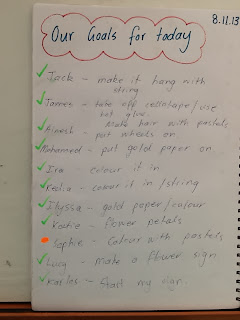 8.11.13
Our Goals for today
Jack - make it hang with
string
James - take off cellotape/use
hot glue.
Make hair with pastels
Aleesh - put wheels on
Mohamed - put gold paper on
Ira - colour it in
Keelia - colour it in /string
Ilyssa - gold paper/colour
Katie - flower petals
Sophie - Colour with pastels
Lucy - Make a flower sign
Karlos - Start my sign.